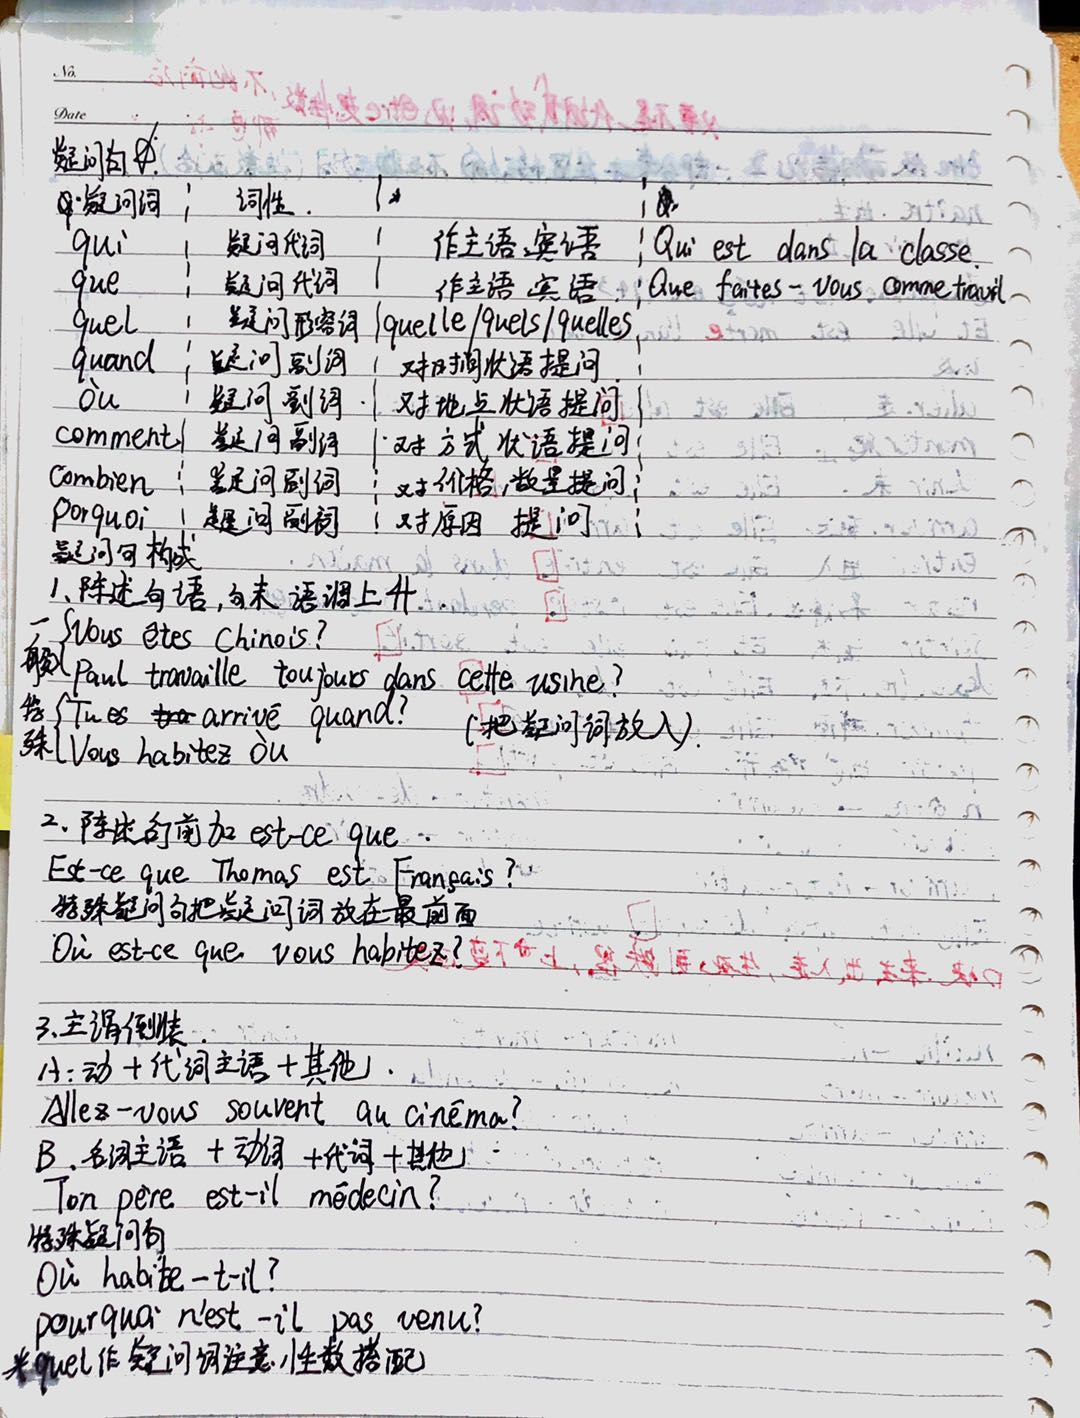 No.
Date
疑问句
疑问词 词性
qui 疑问代词 作主语、宾语 Qui est dans la classe.
que 疑问代词 作主语 宾语 Que faites-vous comme travil
quel 疑问形容词 quelle/quels/quelles
quand 疑问副词 对时间状语提问
où 疑问副词 对地点状语提问
comment 疑问副词 对方式状语提问
Combien 疑问副词 对价格,数量提问
porquoi 疑问副词 对原因 提问
疑问句构成
1、陈述句语,句末语调上升.
一般 Vous êtes Chinois?
Paul travaille toujours dans cette usine?
特殊 Tu es arrivé quand? (把疑问词放入).
Vous habitez où
2、陈述句前加 est-ce que
Est-ce que Thomas est Français?
特殊疑问句把疑问词放在最前面
Où est-ce que vous habitez?
3.主谓倒装.
A:动+代词主语+其他.
Allez-vous souvent au cinéma?
B.名词主语+动词+代词+其他
Ton père est-il médecin?
特殊疑问句
Où habite-t-il?
pourquoi n'est-il pas venu?
*quel作疑问词注意性数搭配